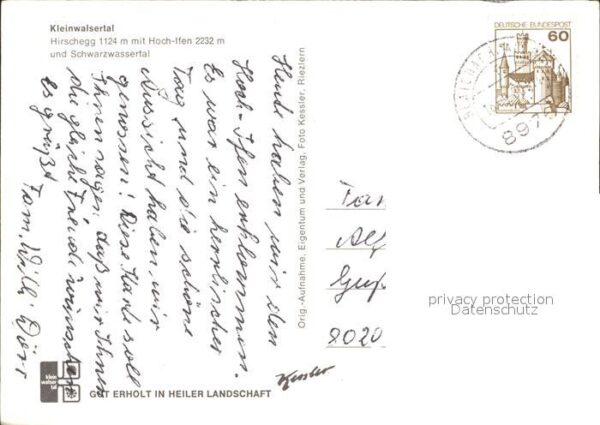 Kleinwalsertal
Hirschegg 1124 m mit Hoch-Ifen 2232 m
und Schwarzwassertal
Heute haben wir den
Hoch-Ifen erklommen.
Es war ein herrlicher
Tag und die schöne
Aussicht haben wir
genossen! Diese Karte soll
Ihnen sagen, daß wir Ihnen
die gleiche Freude wünschen
Es grüßt
Fam. Willi Dörr
Orig.-Aufnahme, Eigentum und Verlag, Foto Kessler, Riezlern
DEUTSCHE BUNDESPOST
60
897
Fam
Alf
8020
privacy protection
Datenschutz
Kessler
klein
walser
tal
GUT ERHOLT IN HEILER LANDSCHAFT